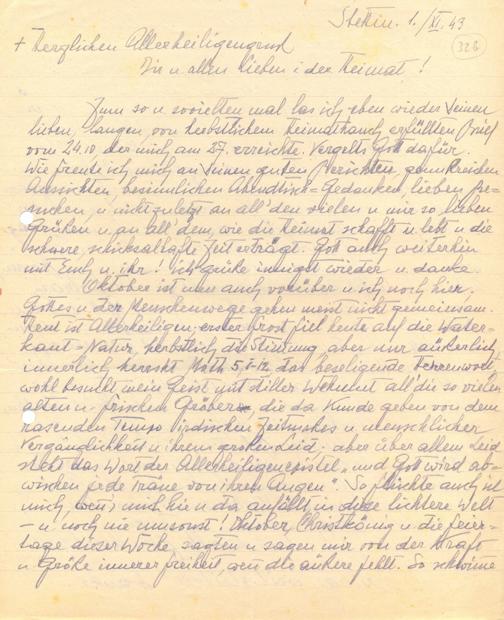 Stettin. 1./XI. 43
326
+ Herzlichen Allerheiligengruß
Dir u allen Lieben i der Heimat!
Zum so u sovielten mal las ich eben wieder Deinen
lieben, langen, von herbstlichem Heimathauch erfüllten Brief
vom 24.10 der mich am 27. erreichte. Vergelts Gott dafür.
Wie freute ich mich an Deinen guten Berichten,
Aussichten, besinnlichen Gedanken, lieben Be-
suchen, u nicht zuletzt an all' den vielen u mir so lieben
Grüßen u an all dem, wie die Heimat schafft u lebt u die
schwere, schicksalhafte Zeit erträgt. Gott auch weiterhin
mit Euch u ihr! Ich grüße innigst wieder u danke.
Oktober ist nun auch vorüber u ich noch hier.
Gottes u der Menschenwege gehen meist nicht gemeinsam.
Heut ist Allerheiligen; erster Frost fiel heute auf die Water-
kant-Natur, herbstlich die Stimmung, aber nur äußerlich
innerlich herrscht Mtth 5, 1-12. das beseligende Herrenwort
wohl besucht mein Geist mit stiller Wehmut all' die so vielen
alten u frischen Gräber, die da Kunde geben von dem
rasenden Tempo irdischen u menschlicher
Vergänglichkeit u ihrem großen Leid; aber über allem Leid
steht das Wort der Allerheiligenepistel „und Gott wird ab-
wischen jede Träne von ihren Augen". So flüchte auch ich
mich, wenns mich hie u da anfällt in diese lichtere Welt
- u noch nie umsonst! Oktober, Christkönig u die Feier-
tage dieser Woche, sagten u sagen mir von der Kraft
u Größe innerer Freiheit, wenn die äußere fehlt. So